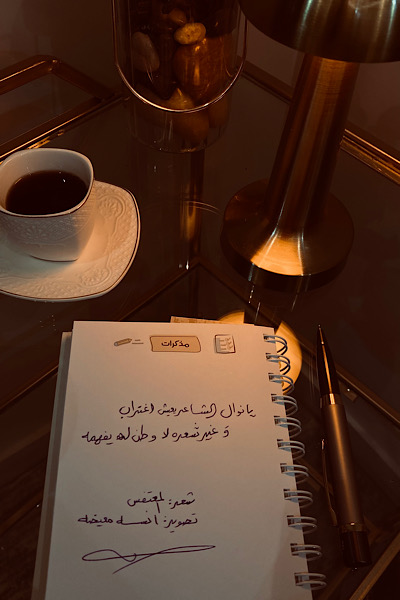 مذكرات
يا نوال الشاعر يعيش اغتراب
و غير شعره لا وطن له يفهمه
شعر: المعتفس
تصوير: انسه معيضه